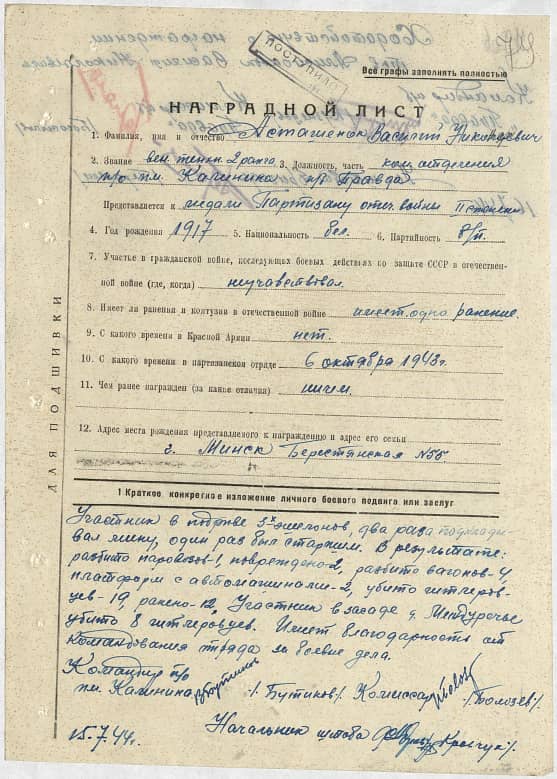 ПОСТУПИЛ
Все графы заполнять полностью
НАГРАДНОЙ ЛИСТ
1. Фамилия, имя и отчество Асташенок Василий
2. Звание воен. техник 2 ранга 3. Должность, часть ком. отделения
п/о им. Калинина п/б Правда
Представляется к медали Партизану отеч. войны II степени
4. Год рождения 1917 5. Национальность бел. 6. Партийность б/п.
7. Участье в гражданской войке, последующих боевых действиях по защате СССР в отечествен-
ной войне (где, когда) неучавствовал.
8. Имеет ли ранения и контузии в отечественной войне имеет одно ранение.
9. С какого времени в Красной Армии нет.
10. С какого времени в партизанском отряде 6 октября 1943г.
11. Чем ранее награжден (за какие отличия) ничем.
12. Адрес места рождения представляемого к награждению и адрес его семьи
г. Минск Берестянская №55
ДЛЯ ПОДШИВКИ
1 Краткое конкретное изложение личного боевого подвига или заслуг
Участник в подрыве 5х эшелонов, два раза подклады-
вал мину, один раз был старшим. В результате:
разбито паровозов-1, повреждено-2, разбито вагонов-4,
платформ с автомашинами-2, убито гитлеров-
цев-19, ранено-12. Участник в засаде д. Междуречье
убито 8 гитлеровцев. Имеет благодарность от
командования отряда за боевые дела.
Командир п/о
им. Калинина /Бутиков/. Комиссар /Болозев/
15.7.44г. Начальник штаба /Кравчук/